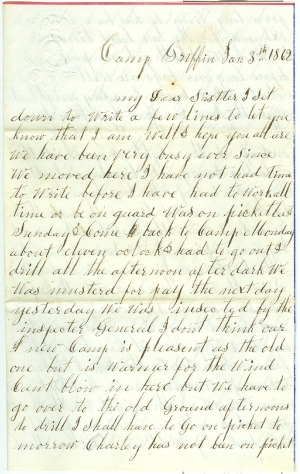 Camp Griffin Jan 3th 1862
my Dear Sistter I set
down to Write a few lines to let you
know that I am Well I hope you all are
We have been very busy ever since
We moved here I have not had time
to Write before I have had to Work all
time or be on guard Was on picket last
Sunday & Come back to Camp Monday
about eleven oclock & had to go out &
drill all the afternoon after dark We
Was musterd for pay the next day
yesterday We Was insected by the
inspecter General I dont think our
new Camp is pleasent as the old
one but is Warmer for the Wind
Cant blow in here but We have to
go over to the old Ground afternoons
to drill I shall have to go on picket to
morrow Charley has not ben on picket